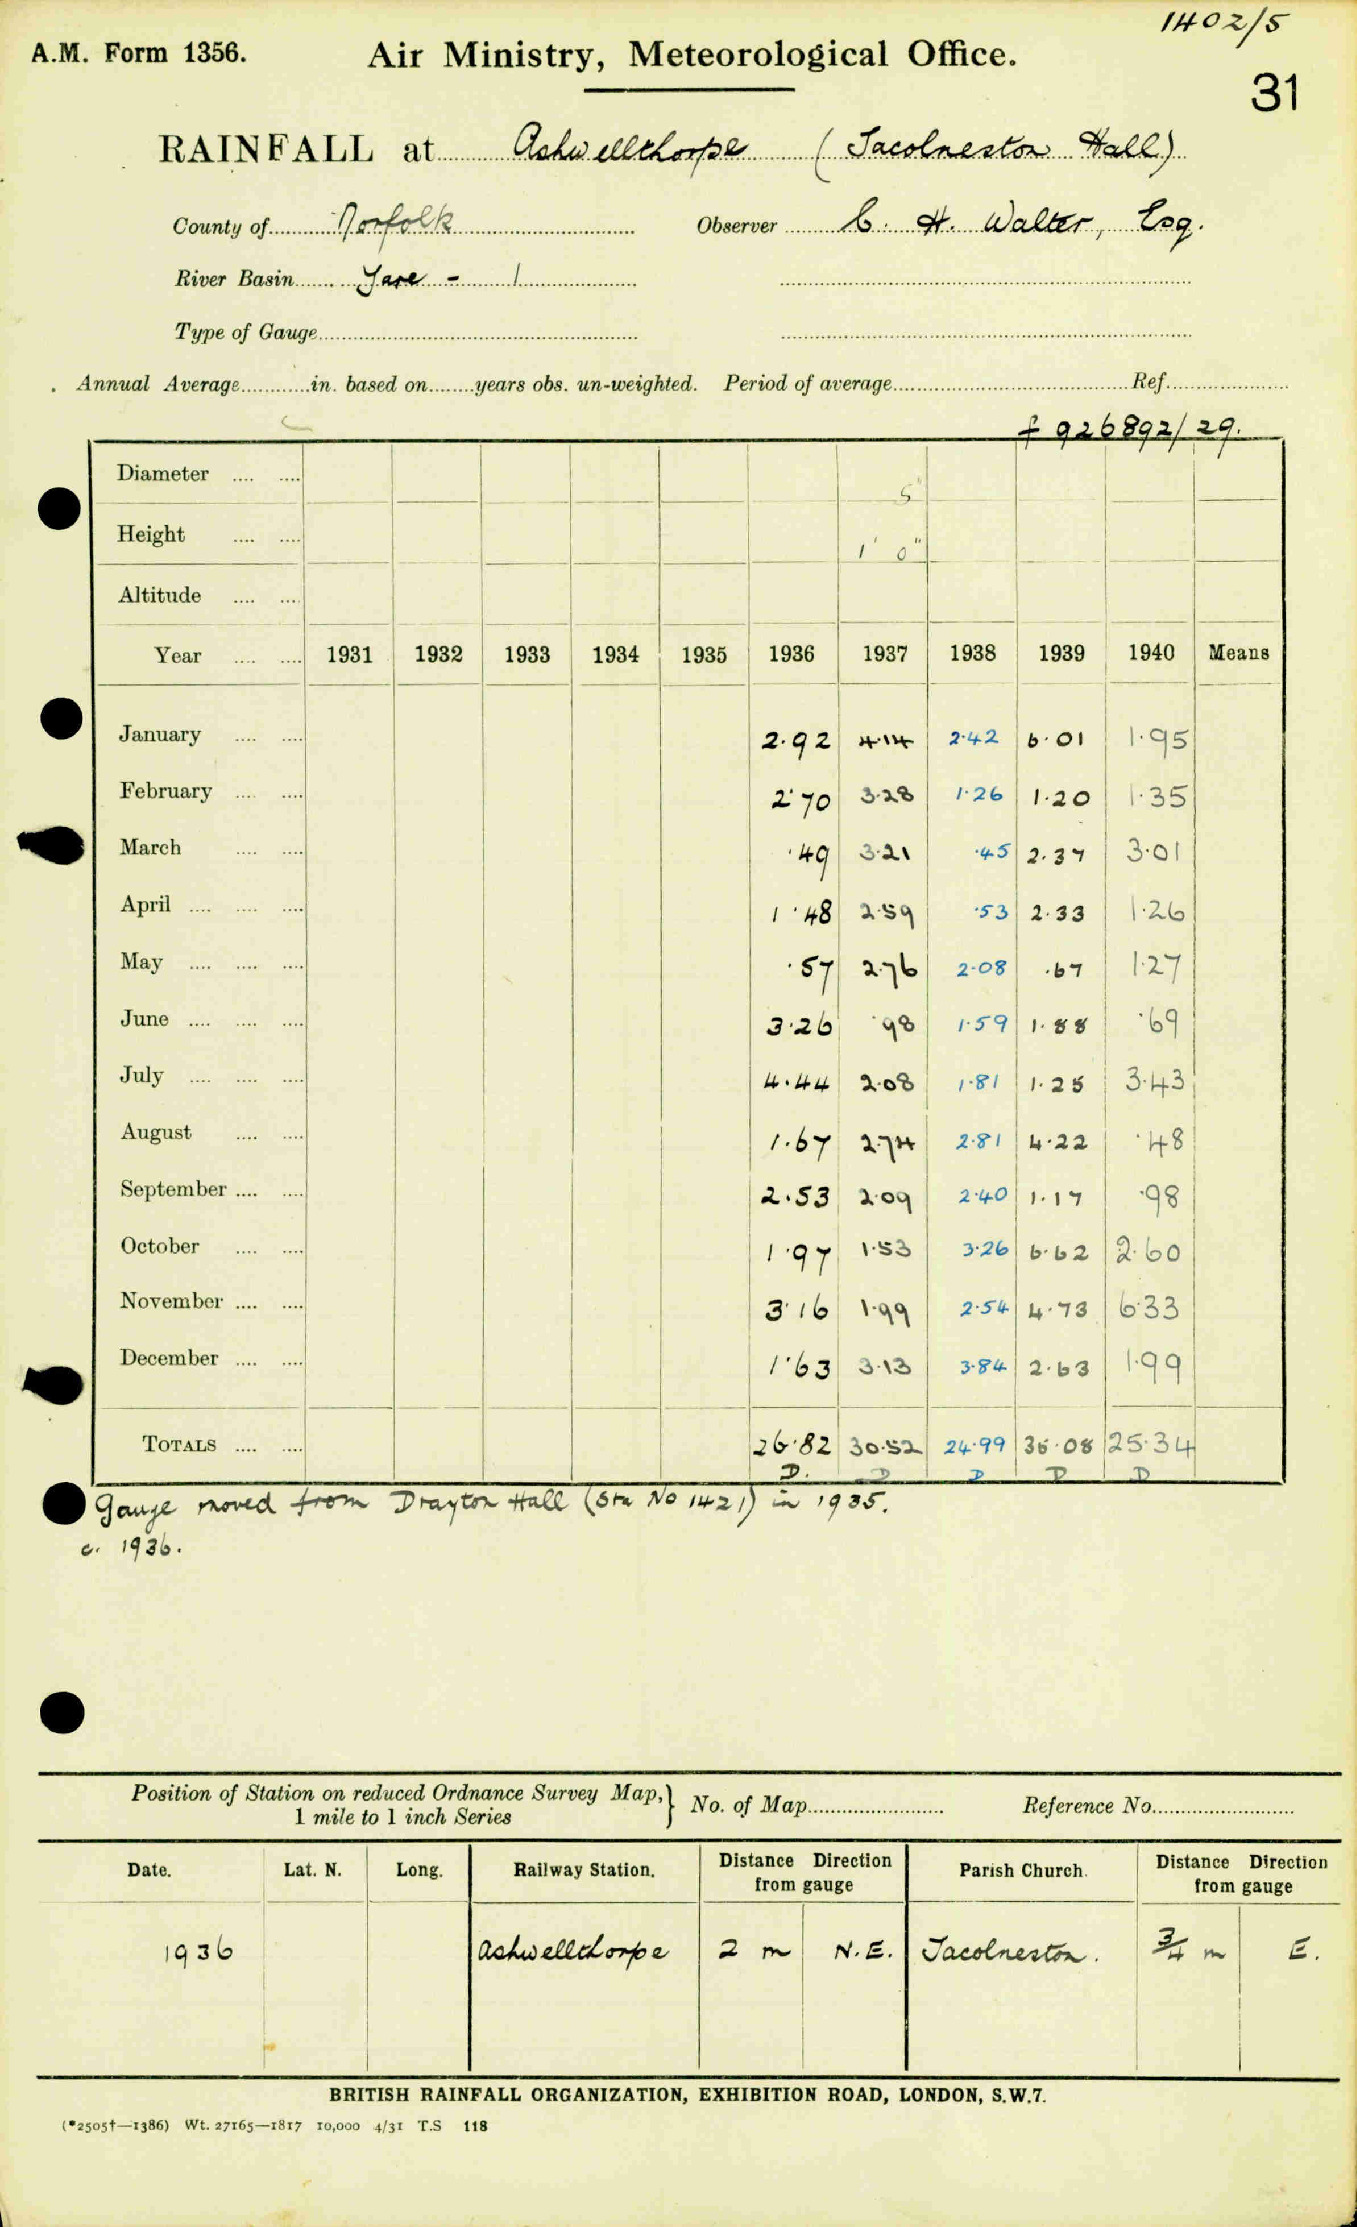 1402/5
A.M. Form 1356. Air Ministry, Meteorological Office.
31
RAINFALL at Ashwellthorpe (Tacolneston Hall)
County of Norfolk Observer C. H. Walter, Esq.
River Basin Yare - 1
Type of Gauge
Annual Average in. based on years obs. un-weighted. Period of average Ref.
f 926892/29.
Diameter 5"
Height 1' 0"
Altitude
Year 1931 1932 1933 1934 1935 1936 1937 1938 1939 1940 Means
January 2.92 4.14 2.42 6.01 1.95
February 2.70 3.28 1.26 1.20 1.35
March .49 3.21 .45 2.37 3.01
April 1.48 2.59 .53 2.33 1.26
May .57 2.76 2.08 .67 1.27
June 3.26 .98 1.59 1.88 .69
July 4.44 2.08 1.81 1.25 3.43
August 1.67 2.74 2.81 4.22 .48
September 2.53 2.09 2.40 1.17 .98
October 1.97 1.53 3.26 6.62 2.60
November 3.16 1.99 2.54 4.73 6.33
December 1.63 3.13 3.84 2.63 1.99
TOTALS 26.82 30.52 24.99 35.08 25.34
D. D D D D
Gauge moved from Drayton Hall (Sta No 1421) in 1935.
c. 1936.
Position of Station on reduced Ordnance Survey Map,} No. of Map Reference No.
1 mile to 1 inch Series
Date. Lat. N. Long. Railway Station. Distance Direction from gauge Parish Church. Distance Direction from gauge
1936 Ashwellthorpe 2 m N.E. Tacolneston. 3/4 m E.
BRITISH RAINFALL ORGANIZATION, EXHIBITION ROAD, LONDON, S.W.7.
(*2505†—1386) Wt. 27165—1817 10,000 4/31 T.S 118